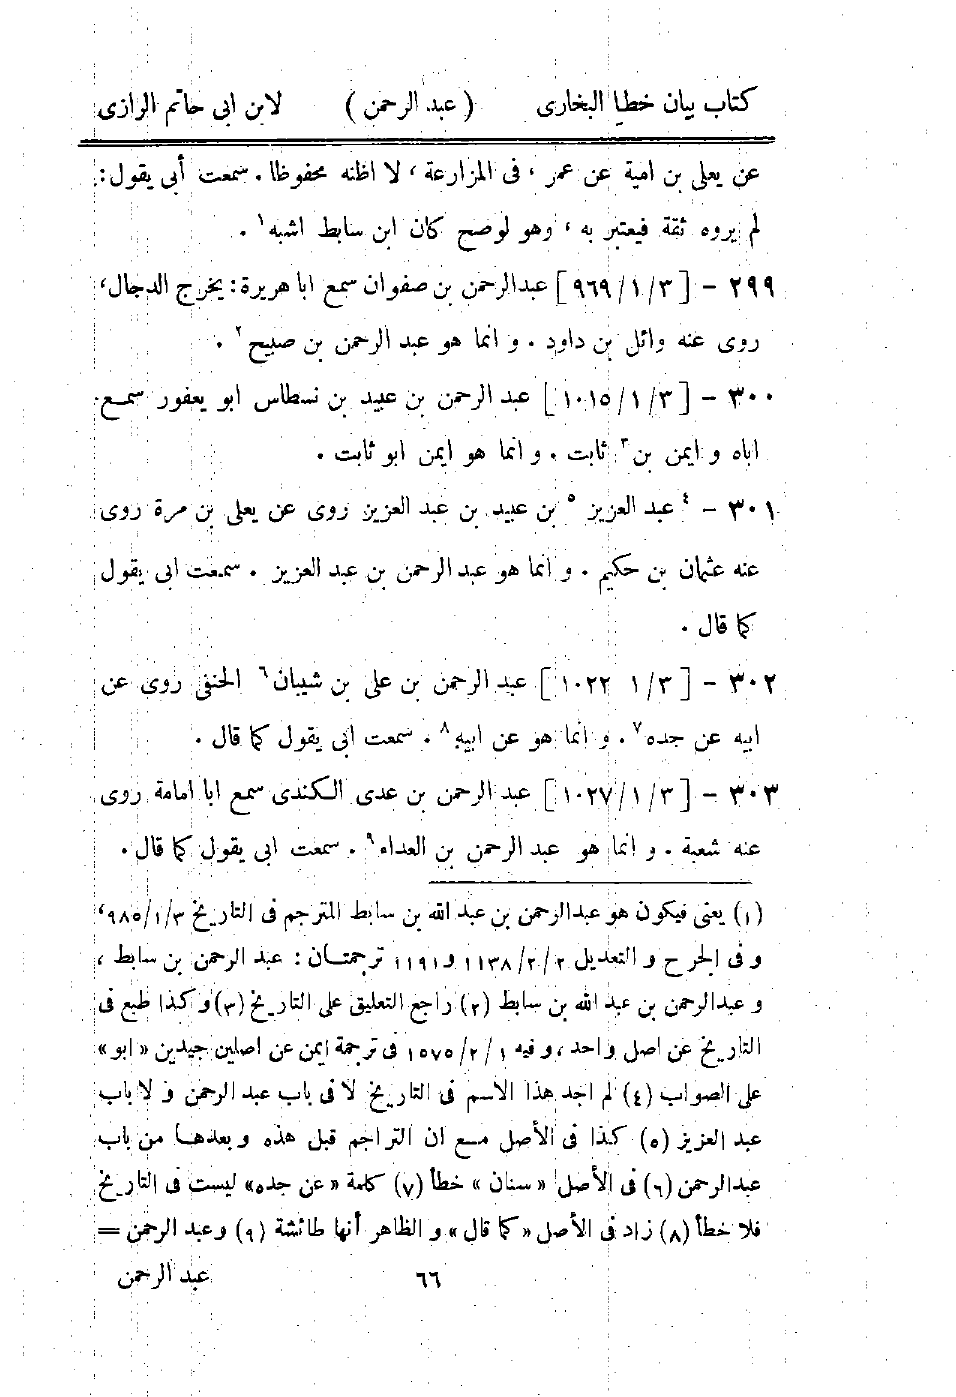 كتاب بيان خطا البخارى ( عبد الرحمن ) لابن ابى حاتم الرازى
عن يعلى بن امية عن عمر ، فى المزارعة ، لا اظنه محفوظا . سمعت أبى يقول :
لم يروه ثقة فيعتبر به ، وهو لوصح كان ابن سابط اشبه ١ .
٢٩٩ - [ ٣/ ١/ ٩٦٩ ] عبدالرحمن بن صفوان سمع ابا هريرة : يخرج الدجال ،
روى عنه وائل بن داود . و انما هو عبد الرحمن بن صبيح ٢ .
٣٠٠ - [ ٣/ ١/ ١٠١٥ ] عبد الرحمن بن عبيد بن نسطاس ابو يعفور سمع
اباه و ايمن بن ٣ ثابت . و انما هو ايمن ابو ثابت .
٣٠١ - ٤ عبد العزيز ٥ بن عبيد بن عبد العزيز روى عن يعلى بن مرة روى
عنه عثمان بن حكيم . و انما هو عبد الرحمن بن عبد العزيز . سمعت ابى يقول
كما قال .
٣٠٢ - [ ٣/ ١ ١٠٢٢ ] عبد الرحمن بن على بن شيبان ٦ الحنفى روى عن
ابيه عن جده ٧ . و انما هو عن ابيه ٨ . سمعت ابى يقول كما قال .
٣٠٣ - [ ٣/ ١/ ١٠٢٧ ] عبد الرحمن بن عدى الكندى سمع ابا امامة روى
عنه شعبة . و انما هو عبد الرحمن بن العداء ٩ . سمعت ابى يقول كما قال .
(١) يعنى فيكون هو عبدالرحمن بن عبد الله بن سابط المترجم فى التاريخ ٣/ ١/ ٩٨٥ ،
و فى الجرح و التعديل ٢/ ٢/ ١١٣٨ و ١١٩١ ترجمتان : عبد الرحمن بن سابط ،
و عبدالرحمن بن عبد الله بن سابط (٢) راجع التعليق على التاريخ (٣) و كذا طبع فى
التاريخ عن اصل واحد ، و فيه ١/ ٢/ ١٥٧٥ فى ترجمة ايمن عن اصلين جيدين « ابو »
على الصواب (٤) لم اجد هذا الاسم فى التاريخ لا فى باب عبد الرحمن و لا باب
عبد العزيز (٥) كذا فى الأصل مع ان التراجم قبل هذه و بعدها من باب
عبدالرحمن (٦) فى الأصل « سنان » خطأ (٧) كلمة « عن جده » ليست فى التاريخ
فلا خطأ (٨) زاد فى الأصل « كما قال » و الظاهر أنها طائشة (٩) و عبد الرحمن =
٦٦ عبد الرحمن